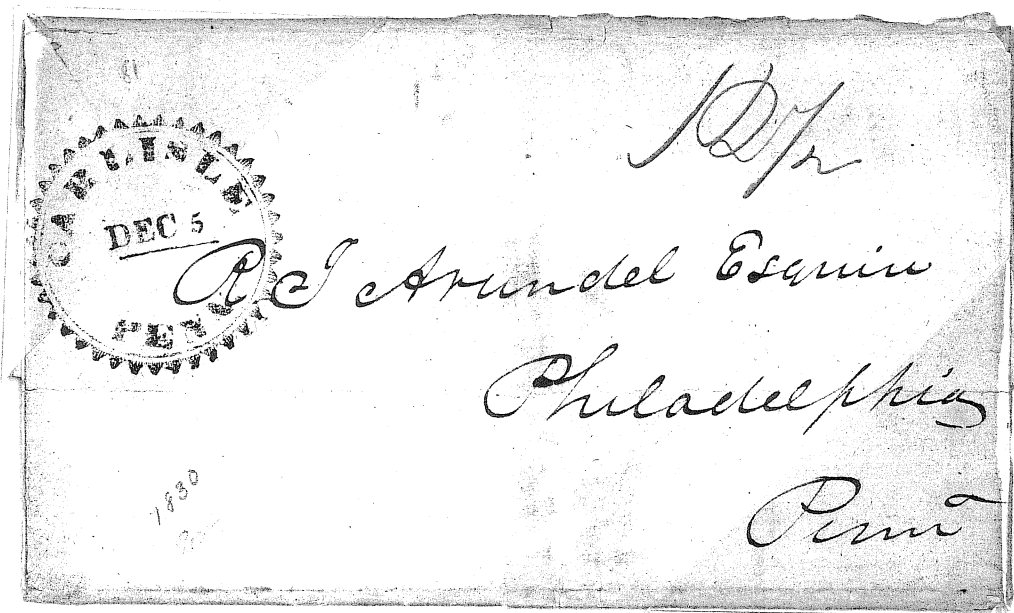 81
12 1/2
CARLISLE
DEC 5
PENN
R J Arundel Esquire
Philadelphia
Penna
1830